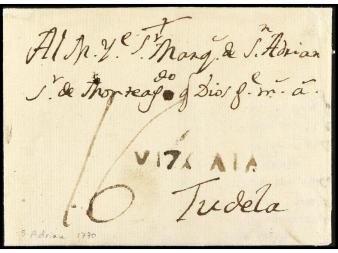 Al M. Y.e S.r Marq. de S.n Adrian
S.r de Monteag.do q Dios g.e m.s a.s
16
VIZCAIA
Tudela
S. Adrian 1770